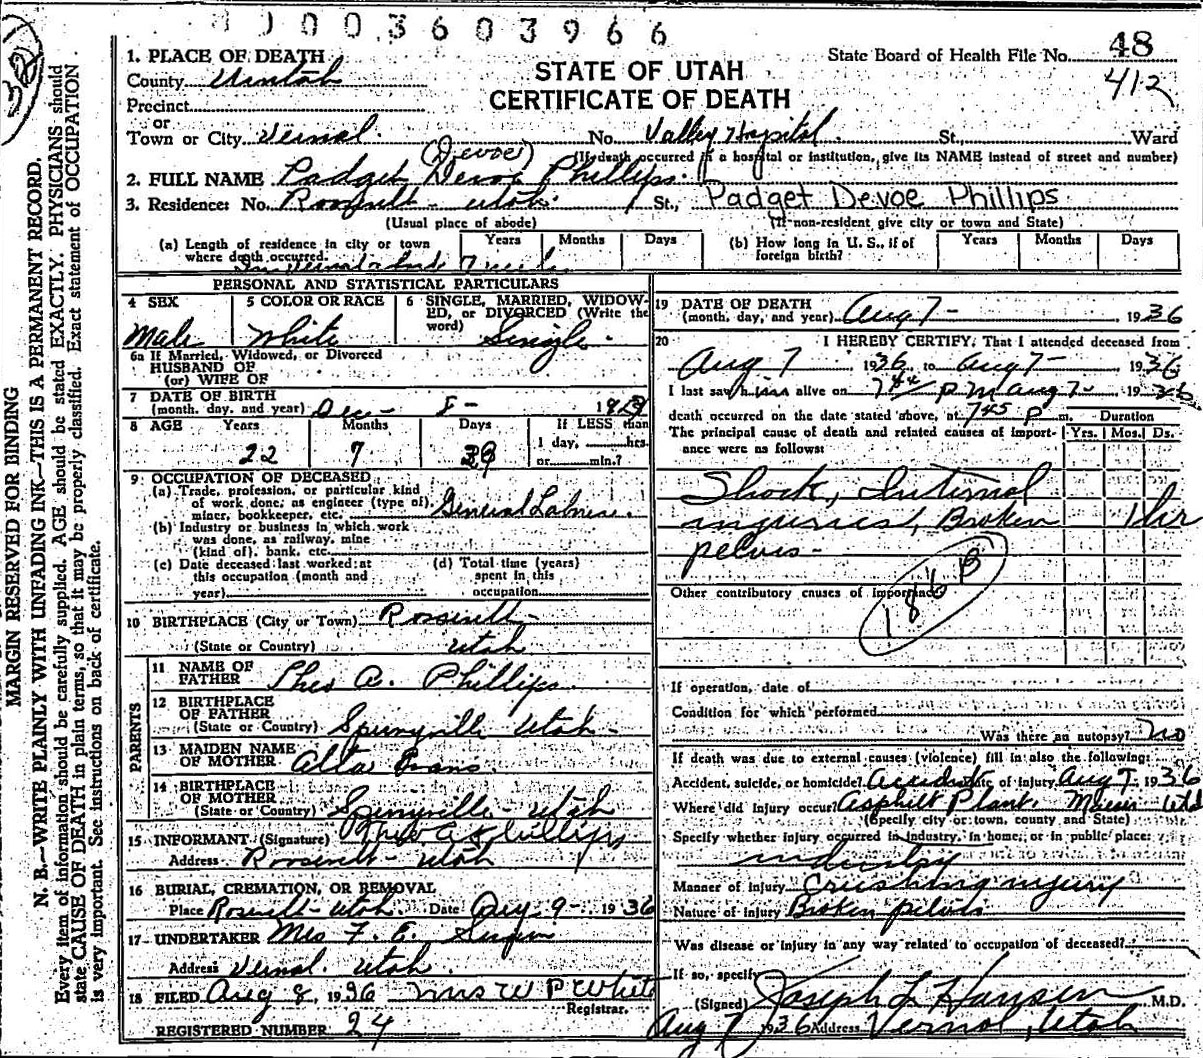 0003603966
1. PLACE OF DEATH
County Uintah
Precinct
or
Town or City Vernal.
STATE OF UTAH
CERTIFICATE OF DEATH
State Board of Health File No. 48
412
No. Valley Hospital St. Ward
(If death occurred in a hospital or institution, give its NAME instead of street and number)
(Devoe)
2. FULL NAME Padget Devoe Phillips.
3. Residence: No. Roosevelt - Utah. St., Padget Devoe Phillips
(Usual place of abode) (If non-resident give city or town and State)
(a) Length of residence in city or town where death occurred. Years Months Days
(b) How long in U. S., if of foreign birth? Years Months Days
PERSONAL AND STATISTICAL PARTICULARS
4 SEX Male
5 COLOR OR RACE White
6 SINGLE, MARRIED, WIDOWED, or DIVORCED (Write the word) Single.
6a If Married, Widowed, or Divorced
HUSBAND OF
(or) WIFE OF
7 DATE OF BIRTH
(month, day, and year) Dec - 8 - 1913
8 AGE Years Months Days If LESS than
22 7 29 1 day, hrs.
or min.?
9 OCCUPATION OF DECEASED
(a) Trade, profession, or particular kind
of work done, as engineer (type of),
miner, bookkeeper, etc. General Laborer.
(b) Industry or business in which work
was done, as railway, mine
(kind of), bank, etc.
(c) Date deceased last worked at
this occupation (month and
year)
(d) Total time (years)
spent in this
occupation
10 BIRTHPLACE (City or Town) Roosevelt
(State or Country) Utah
PARENTS
11 NAME OF
FATHER Theo A. Phillips.
12 BIRTHPLACE
OF FATHER
(State or Country) Springville Utah -
13 MAIDEN NAME
OF MOTHER Alta Evans
14 BIRTHPLACE
OF MOTHER
(State or Country) Springville - Utah
15 INFORMANT (Signature) Theo A Phillips
Address Roosevelt - Utah
16 BURIAL, CREMATION, OR REMOVAL
Place Roosevelt - Utah. Date Aug 9 - 1936
17 UNDERTAKER Mrs F. E.
Address Vernal. Utah.
18 FILED Aug 8, 1936 Mrs W P White
Registrar.
REGISTERED NUMBER 24
19 DATE OF DEATH
(month, day, and year) Aug 7 - 1936
20 I HEREBY CERTIFY, That I attended deceased from
Aug 7 1936, to Aug 7 - 1936
I last saw him alive on 7 44 P M Aug 7 - 1936
death occurred on the date stated above, at 7 45 P m. Duration
The principal cause of death and related causes of importance were as follows: Yrs. Mos. Ds.
Shock, Internal
injuries, Broken 1 hr
pelvis -
Other contributory causes of importance
186 B
If operation, date of
Condition for which performed
Was there an autopsy? No
If death was due to external causes (violence) fill in also the following:
Accident, suicide, or homicide? Accident of injury Aug 7 1936
Where did injury occur? Asphalt Plant, Maeser Utah
(Specify city or town, county and State)
Specify whether injury occurred in industry, in home, or in public place:
industry
Manner of injury Crushing injury
Nature of injury Broken pelvis
Was disease or injury in any way related to occupation of deceased?
If so, specify
(Signed) Joseph L Hansen M.D.
Aug 7 1936 Address Vernal, Utah
MARGIN RESERVED FOR BINDING
N. B.—WRITE PLAINLY WITH UNFADING INK—THIS IS A PERMANENT RECORD.
Every item of information should be carefully supplied. AGE should be stated EXACTLY. PHYSICIANS should
state CAUSE OF DEATH in plain terms, so that it may be properly classified. Exact statement of OCCUPATION
is very important. See instructions on back of certificate.